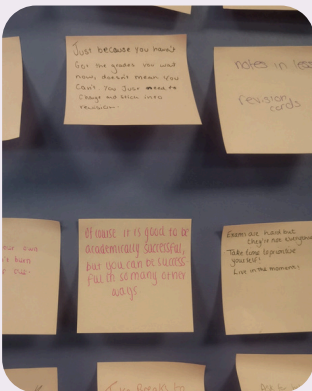 Just because you haven't
Got the grades you want
now, doesn't mean you
can't. You just need to
change and into
revision.
notes in less
revision
cards
Of course it is good to be
academically successful,
but you can be success
ful in so many other
ways
Exams are hard but
they're not everything
Take time to prioritise
yourself!
Live in the moment!